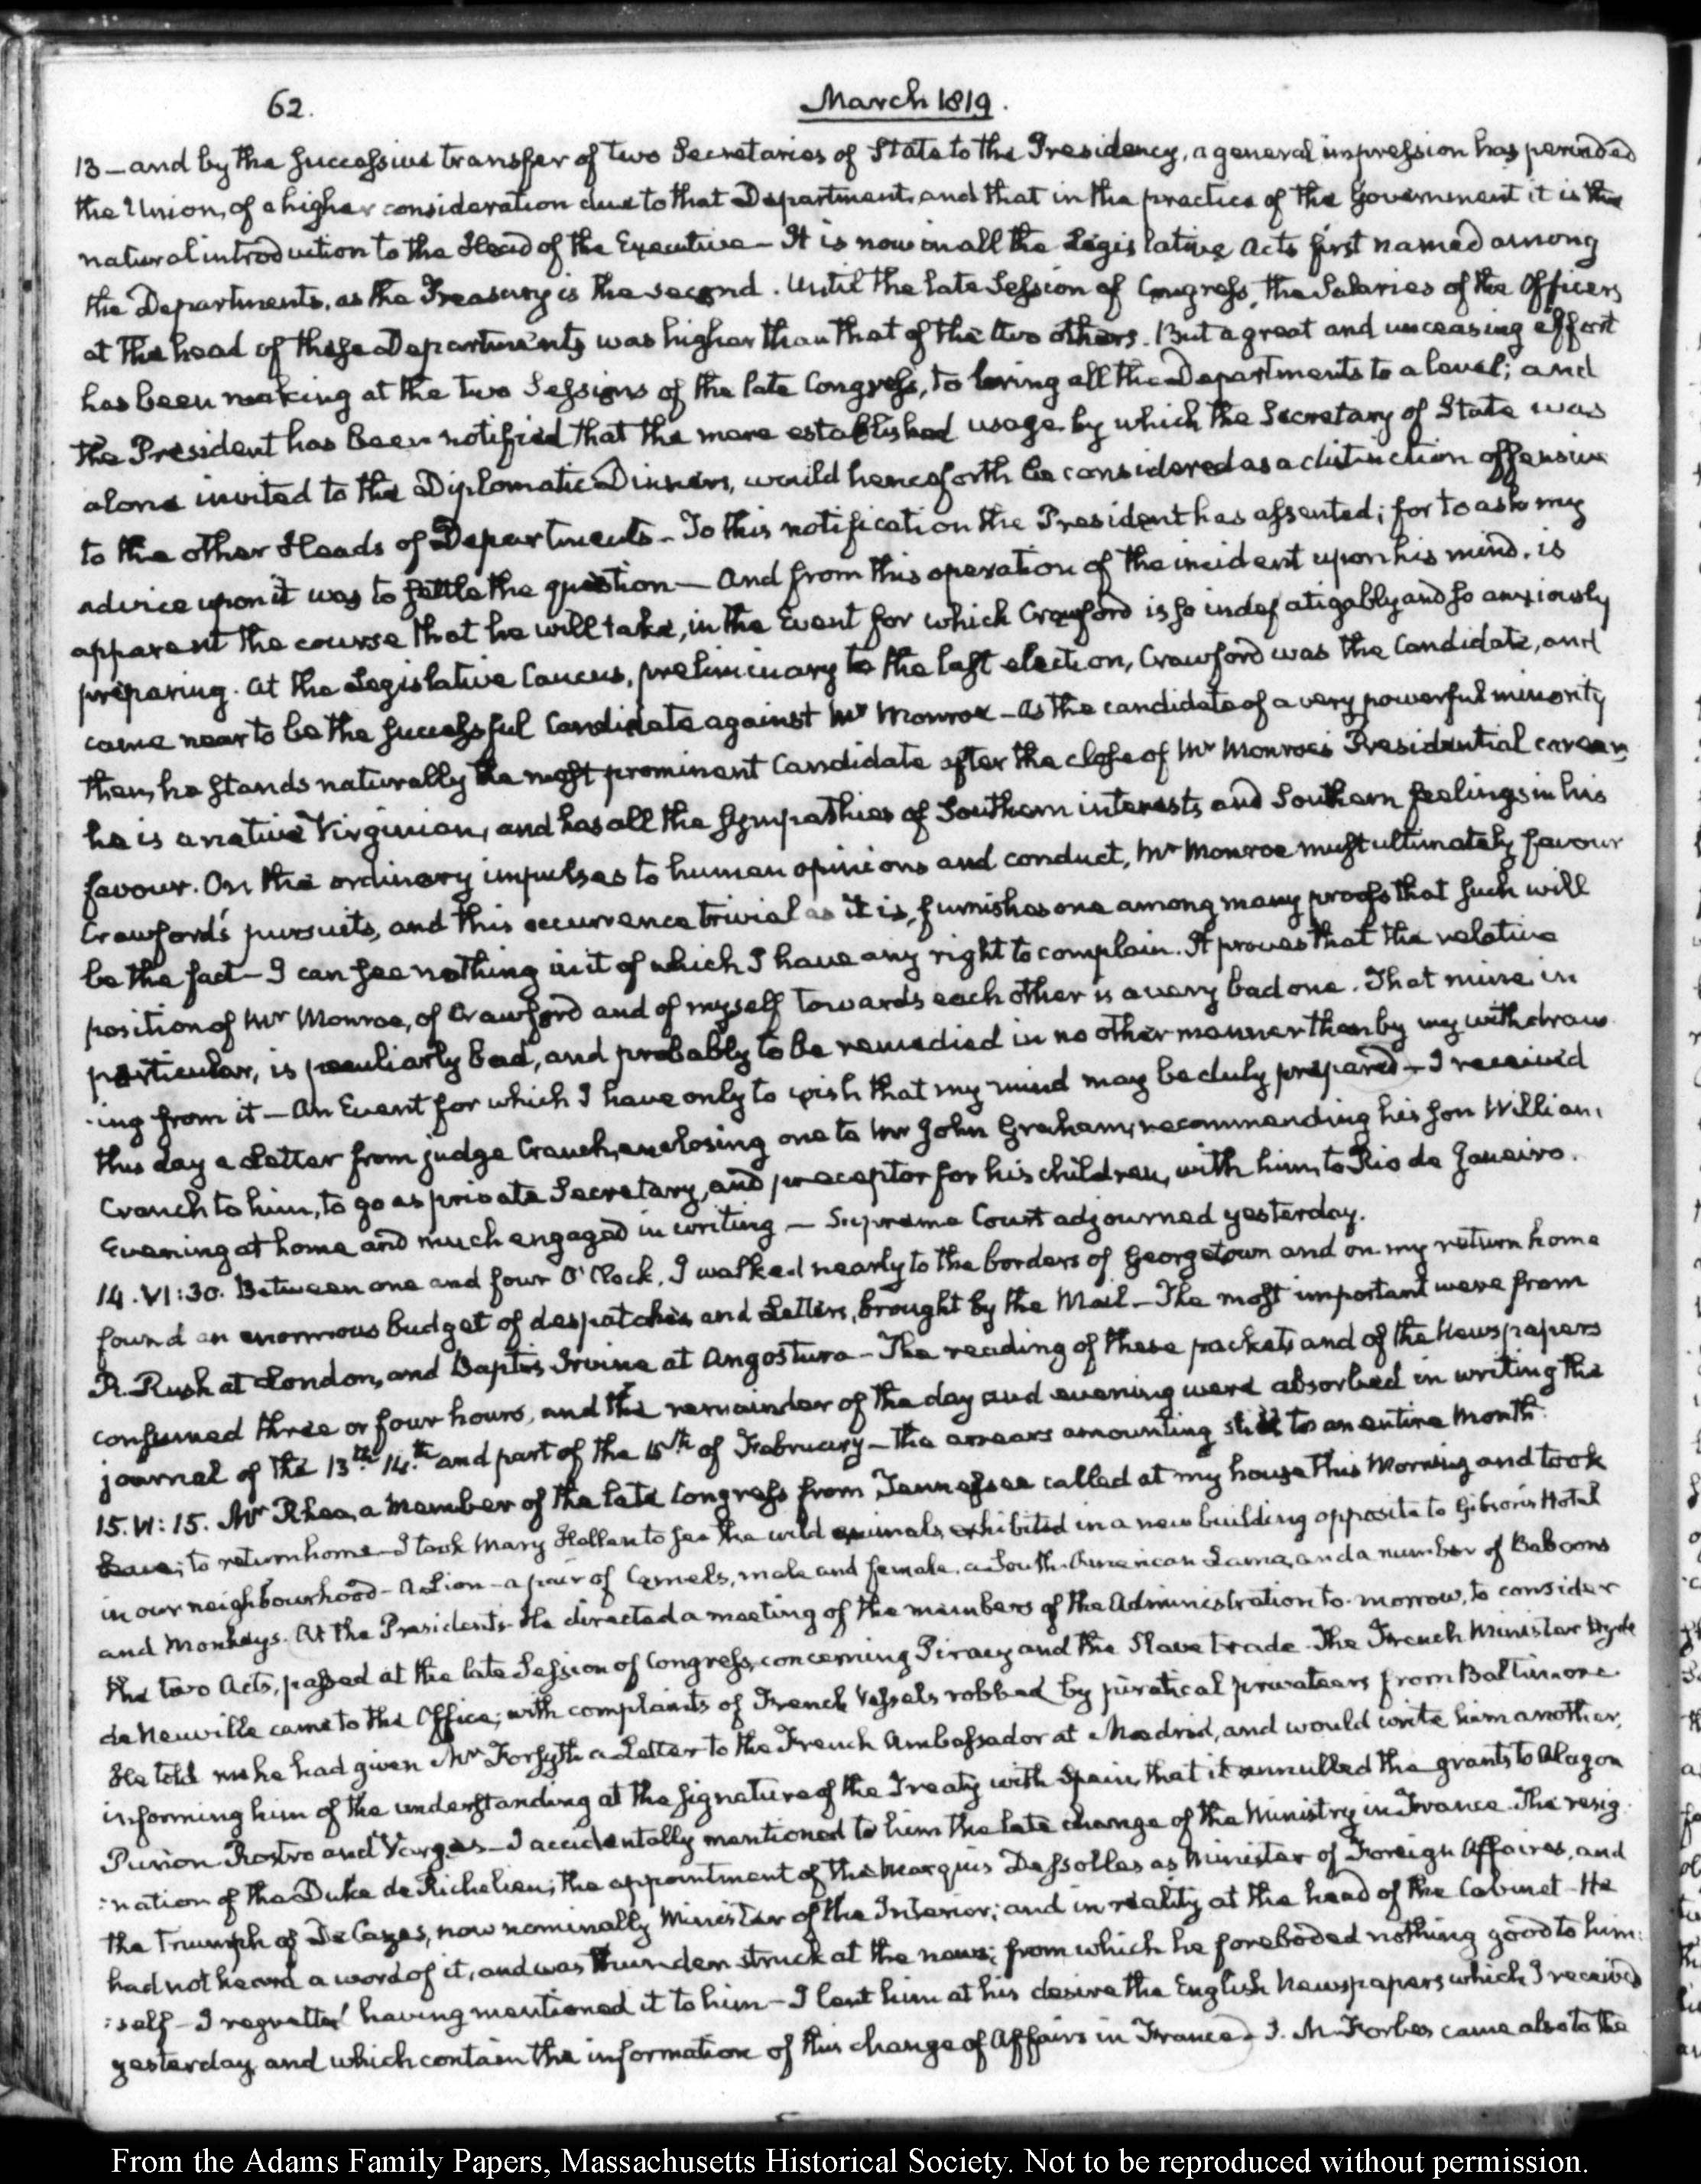 62.
March 1819.
13 – and by the successive transfer of two Secretaries of State to the Presidency, a general impression has pervaded
the Union, of a higher consideration due to that Department, and that in the practice of the Government it is the
natural introduction to the Head of the Executive – It is now in all the Legislative Acts first named among
the Departments, as the Treasury is the second. Until the late Session of Congress, the Salaries of the Officers
at the head of these Departments was higher than that of the two others. But a great and unceasing effort
has been making at the two Sessions of the late Congress, to bring all the Departments to a level; and
the President has been notified that the mere established usage by which the Secretary of State was
alone invited to the Diplomatic Dinners, would henceforth be considered as a distinction offensive
to the other Heads of Departments – To this notification the President has assented; for to ask my
advice upon it was to settle the question – And from this operation of the incident upon his mind, is
apparent the course that he will take, in the Event for which Crawford is so indefatigably and so anxiously
preparing. At the Legislative Caucus, preliminary to the last election, Crawford was the Candidate, and
came near to be the successful Candidate against Mr Monroe – As the candidate of a very powerful minority
then, he stands naturally the most prominent Candidate after the close of Mr Monroe's Presidential career,
he is a native Virginian, and has all the sympathies of Southern interests and Southern feelings in his
favour. On the ordinary impulses to human opinions and conduct, Mr Monroe must ultimately favour
Crawford's pursuits, and this occurrence trivial as it is, furnishes one among many proofs that such will
be the fact – I can see nothing in it of which I have any right to complain. It proves that the relative
position of Mr Monroe, of Crawford and of myself towards each other is a very bad one. That mine in
particular, is peculiarly bad, and probably to be remedied in no other manner than by my withdraw
:ing from it – An Event for which I have only to wish that my mind may be duly prepared – I received
this day a Letter from judge Cranch, enclosing one to Mr John Graham, recommending his son William
Cranch to him, to go as private Secretary, and preceptor for his children, with him, to Rio de Janeiro.
Evening at home and much engaged in writing – Supreme Court adjourned yesterday.
14. VI:30. Between one and four O'Clock, I walked nearly to the borders of Georgetown and on my return home
found an enormous budget of despatches and Letters, brought by the Mail – The most important were from
R. Rush at London, and Baptis Irvine at Angostura – The reading of these packets and of the Newspapers
consumed three or four hours, and the remainder of the day and evening were absorbed in writing the
journal of the 13th 14th and part of the 15th of February – the arrears amounting still to an entire Month.
15. VI:15. Mr Rhea, a member of the late Congress from Tennessee called at my house this Morning and took
leave; to return home – I took Mary Hellen to see the wild animals, exhibited in a new building opposite to Gibson's Hotel
in our neighbourhood – A Lion – a pair of Camels, male and female, a South-American Lama, and a number of Baboons
and Monkeys. At the President's – He directed a meeting of the members of the Administration to-morrow, to consider
the two Acts, passed at the late Session of Congress, concerning Piracy and the Slave trade – The French Minister Hyde
de Neuville came to the Office; with complaints of French Vessels robbed by piratical privateers from Baltimore
He told me he had given Mr Forsyth a Letter to the French Ambassador at Madrid, and would write him another,
informing him of the understanding at the signature of the Treaty with Spain, that it annulled the grants to Alagon
Puñon Rostro and Vargas – I accidentally mentioned to him the late change of the Ministry in France – The resig
:nation of the Duke de Richelieu; the appointment of the Marquis Dessolles as Minister of Foreign Affairs, and
the triumph of De Cazes, now nominally Minister of the Interior; and in reality at the head of the Cabinet – He
had not heard a word of it, and was thunder struck at the news; from which he foreboded nothing good to him:
:self – I regretted having mentioned it to him – I lent him at his desire the English Newspapers which I received
yesterday, and which contain the information of this change of Affairs in France – J. M. Forbes came also to the
From the Adams Family Papers, Massachusetts Historical Society. Not to be reproduced without permission.